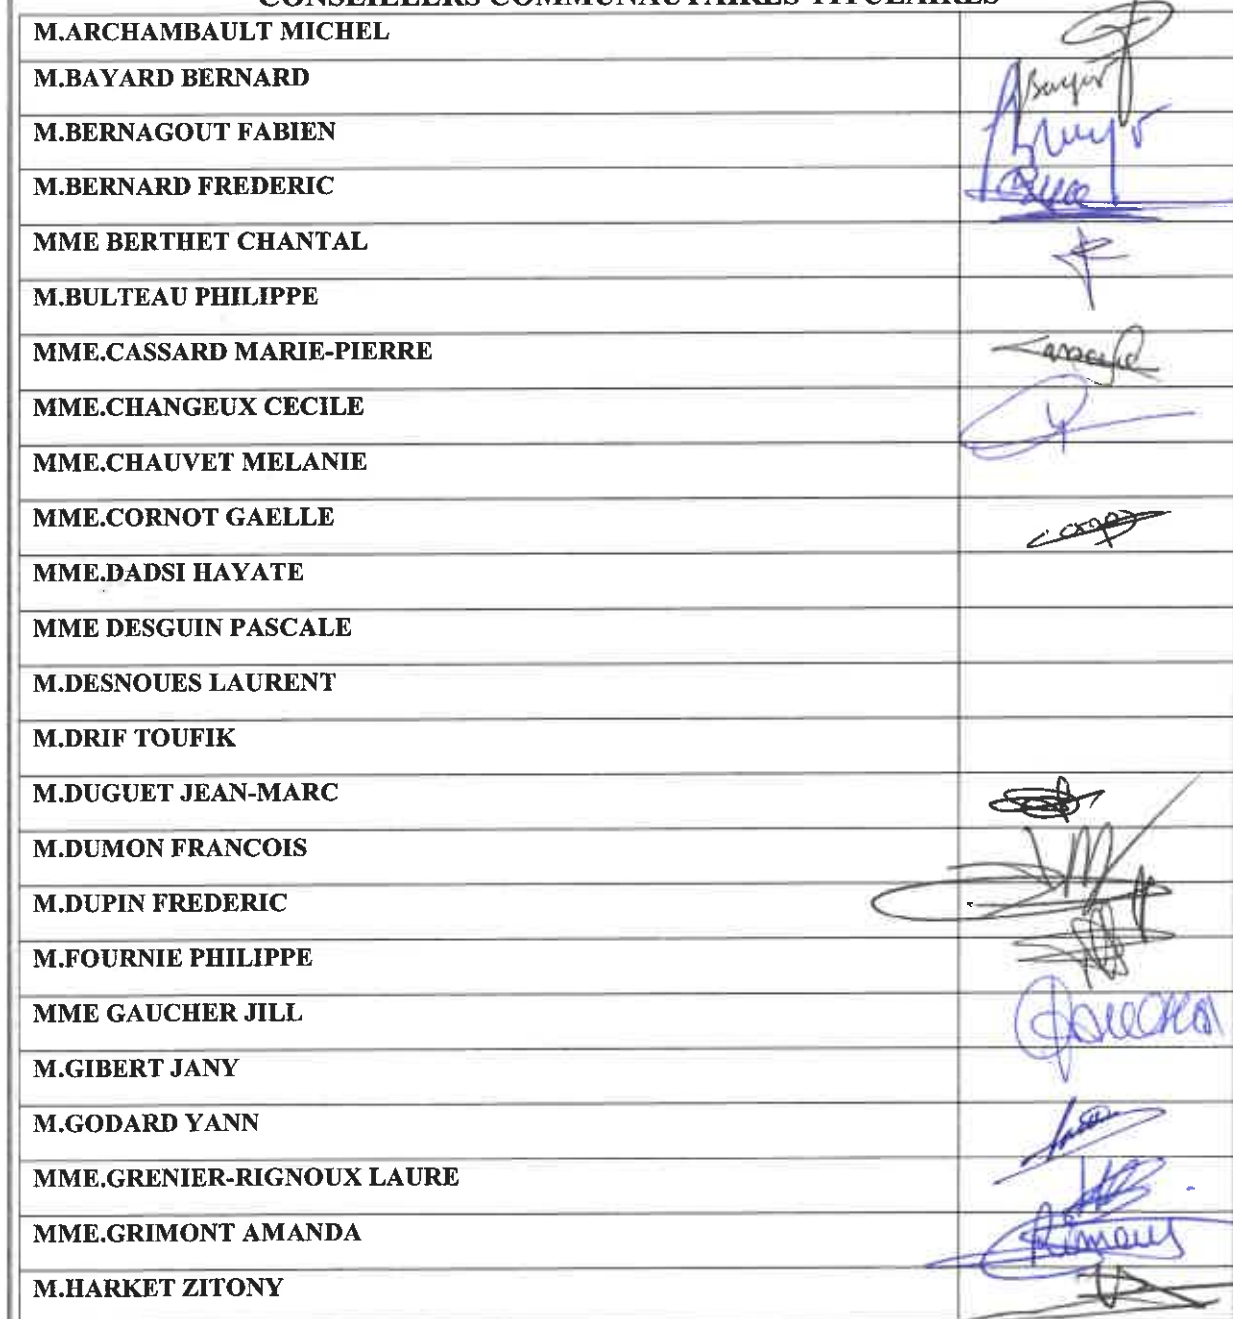 CONSEILLERS COMMUNAUTAIRES TITULAIRES
M.ARCHAMBAULT MICHEL
M.BAYARD BERNARD
M.BERNAGOUT FABIEN
M.BERNARD FREDERIC
MME BERTHET CHANTAL
M.BULTEAU PHILIPPE
MME.CASSARD MARIE-PIERRE
MME.CHANGEUX CECILE
MME.CHAUVET MELANIE
MME.CORNOT GAELLE
MME.DADSI HAYATE
MME DESGUIN PASCALE
M.DESNOUES LAURENT
M.DRIF TOUFIK
M.DUGUET JEAN-MARC
M.DUMON FRANCOIS
M.DUPIN FREDERIC
M.FOURNIE PHILIPPE
MME GAUCHER JILL
M.GIBERT JANY
M.GODARD YANN
MME.GRENIER-RIGNOUX LAURE
MME.GRIMONT AMANDA
M.HARKET ZITONY